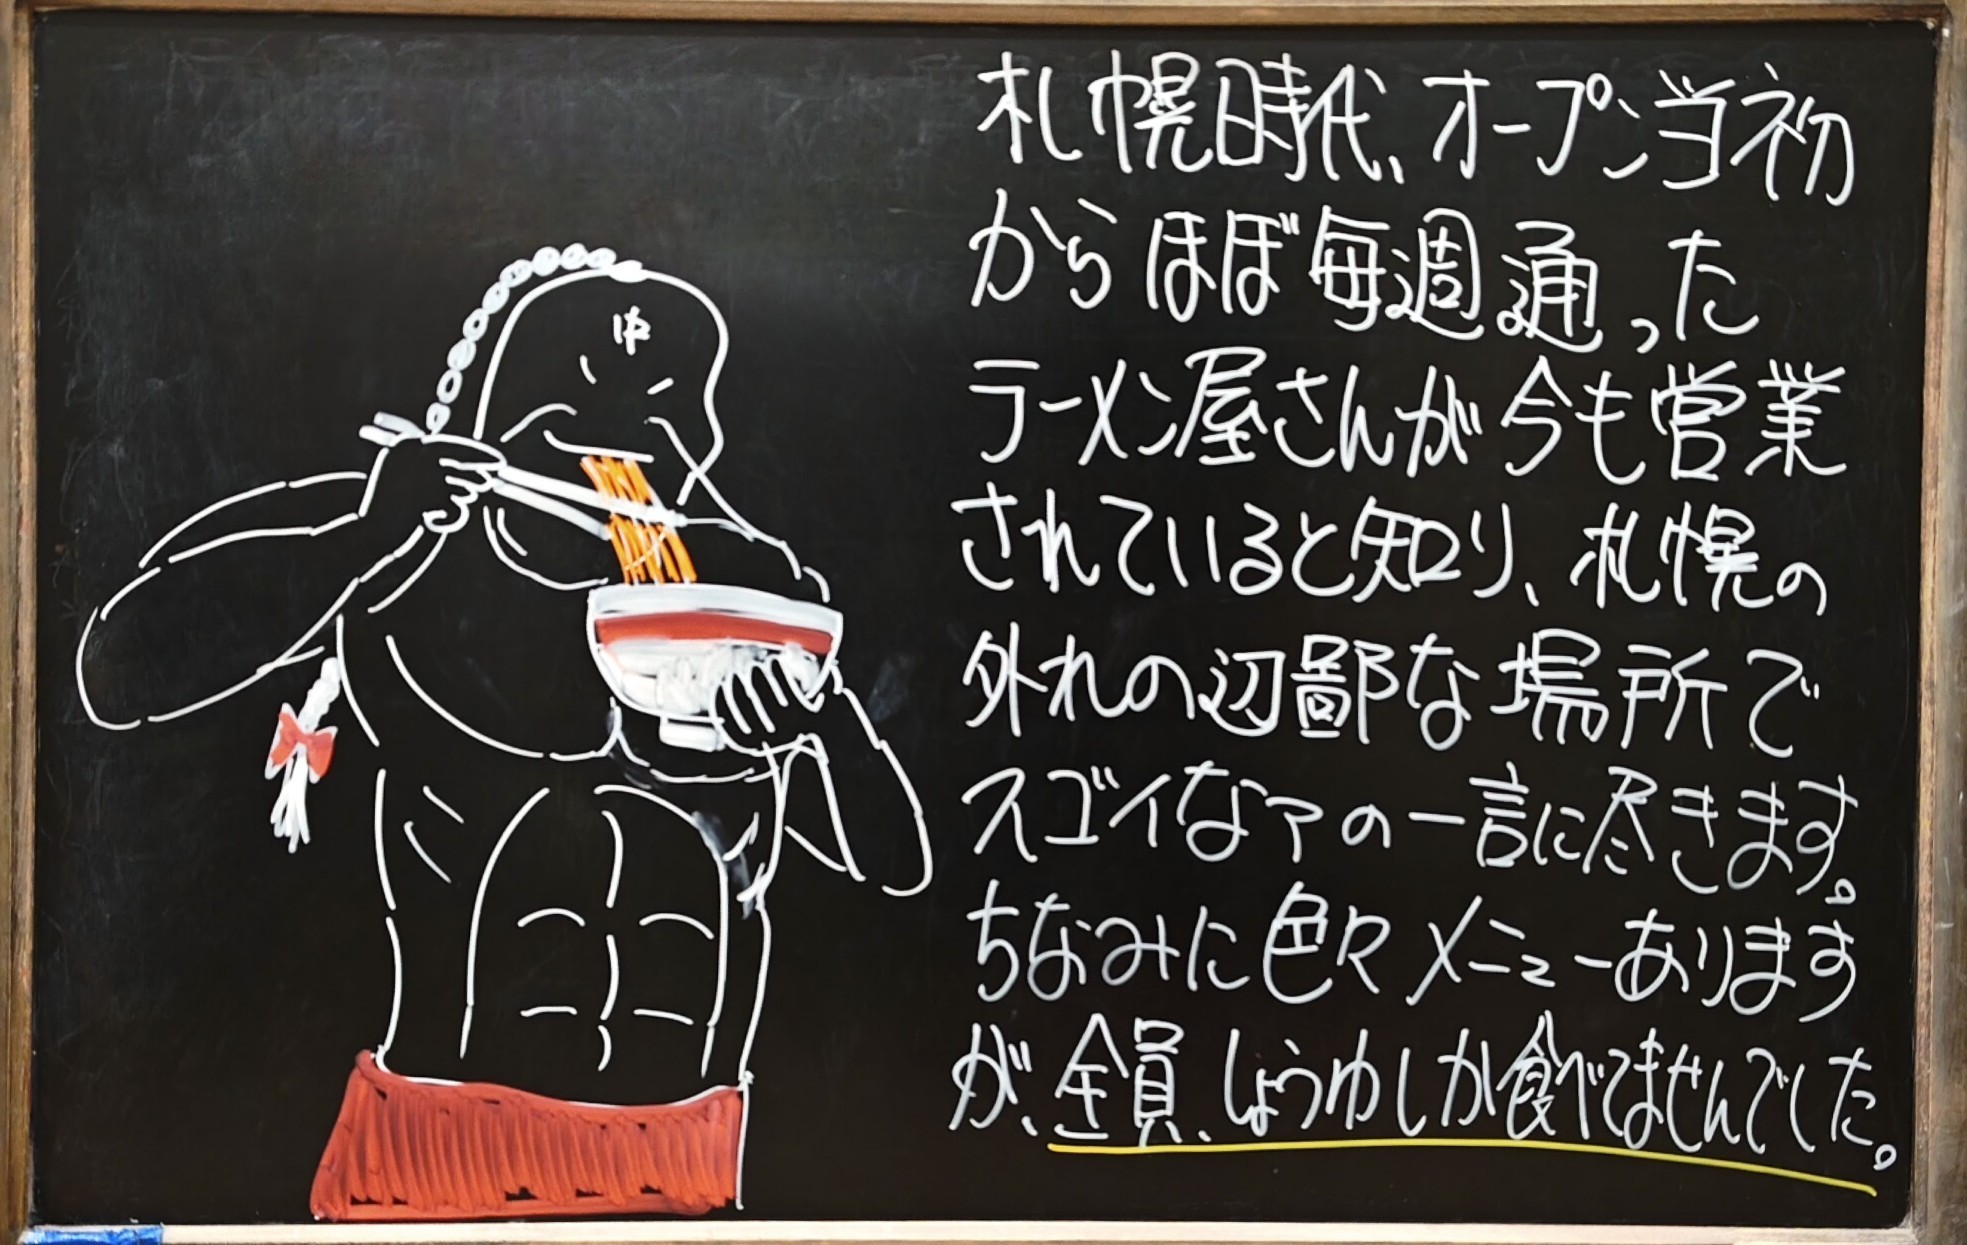 札幌時代、オープン当初
からほぼ毎週通った
ラーメン屋さんが今も営業
されていると知り、札幌の
外れの辺鄙な場所で
スゴイなァの一言に尽きます。
ちなみに色々メニューあります
が、全員、しょうゆしか食べてませんでした。
中